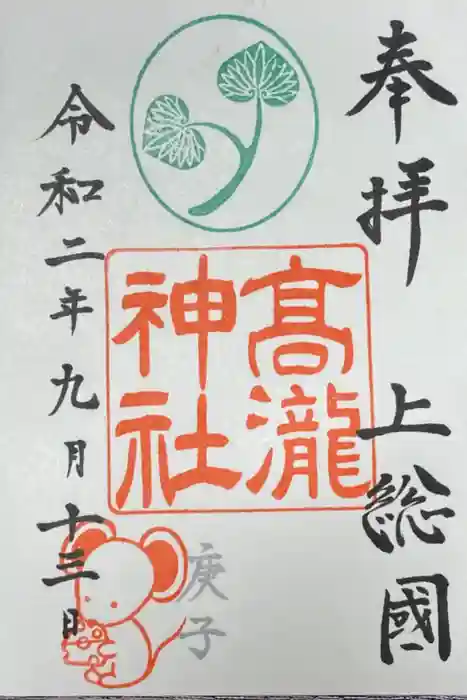 奉拝
上総國
髙瀧
神社
令和二年九月十三日
庚子